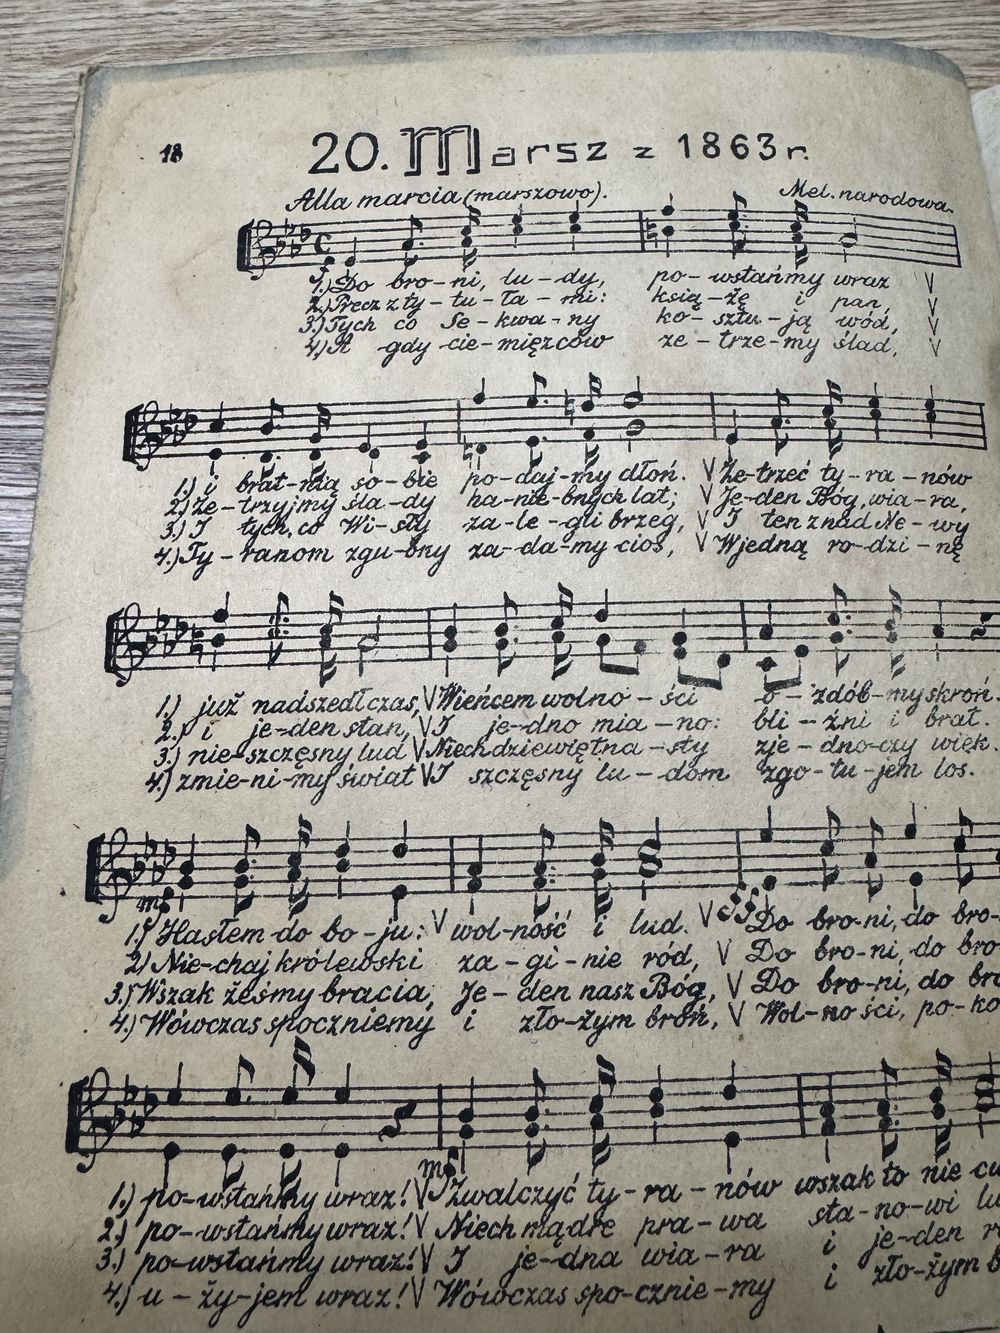 18
20. Marsz z 1863 r.
Alla marcia (marszowo).
Mel. narodowa.
1.) Do bro-ni, lu-dy, po-wstańmy wraz V
2.) Precz z ty-tu-ła-mi: ksią-żę i pan, V
3.) Tych co Se-kwa-ny ko-sztu-ją wód, V
4.) A gdy cie-mięzców ze-trze-my ślad, V
1.) i brat-nią so-bie po-daj-my dłoń. V Ze-trzeć ty-ra-nów
2.) ze-trzyjmy śla-dy ha-nie-bnych lat; V Je-den Bóg, wia-ra,
3.) I tych, co Wi-sły za-le-gli brzeg, V I ten z nad Ne-wy
4.) Ty-ranom zgu-bny za-da-my cios, V W jedną ro-dzi-nę
1.) już nadszedł czas, V Wieńcem wolno-ści o-zdób-my skroń.
2.) i je-den stan, V I je-dno mia-no: bli-źni i brat.
3.) nie-szczęsny lud V Niech dziewiętna-sty zje-dno-czy wiek.
4.) zmie-ni-my świat V I szczęsny lu-dom zgo-tu-jem los.
mf
1.) Hasłem do bo-ju: V wol-ność i lud. V Do bro-ni, do bro-
2) Nie-chaj królewski za-gi-nie ród, V Do bro-ni, do bro
3.) Wszak żeśmy bracia, Je-den nasz Bóg, V Do bro-ni, do br
4.) Wówczas spoczniemy i zło-żym broń, V Wol-no ści, po-ko
mf
1.) po-wstańmy wraz! V Zwalczyć ty-ra-nów wszak to nie cu
2.) po-wstańmy wraz! V Niech mądre pra-wa sta-no-wi lu
3.) po-wstańmy wraz! V I je-dna wia-ra i je-den r
4.) u-ży-jem wraz! V Wówczas spo-cznie-my i zło-żym b